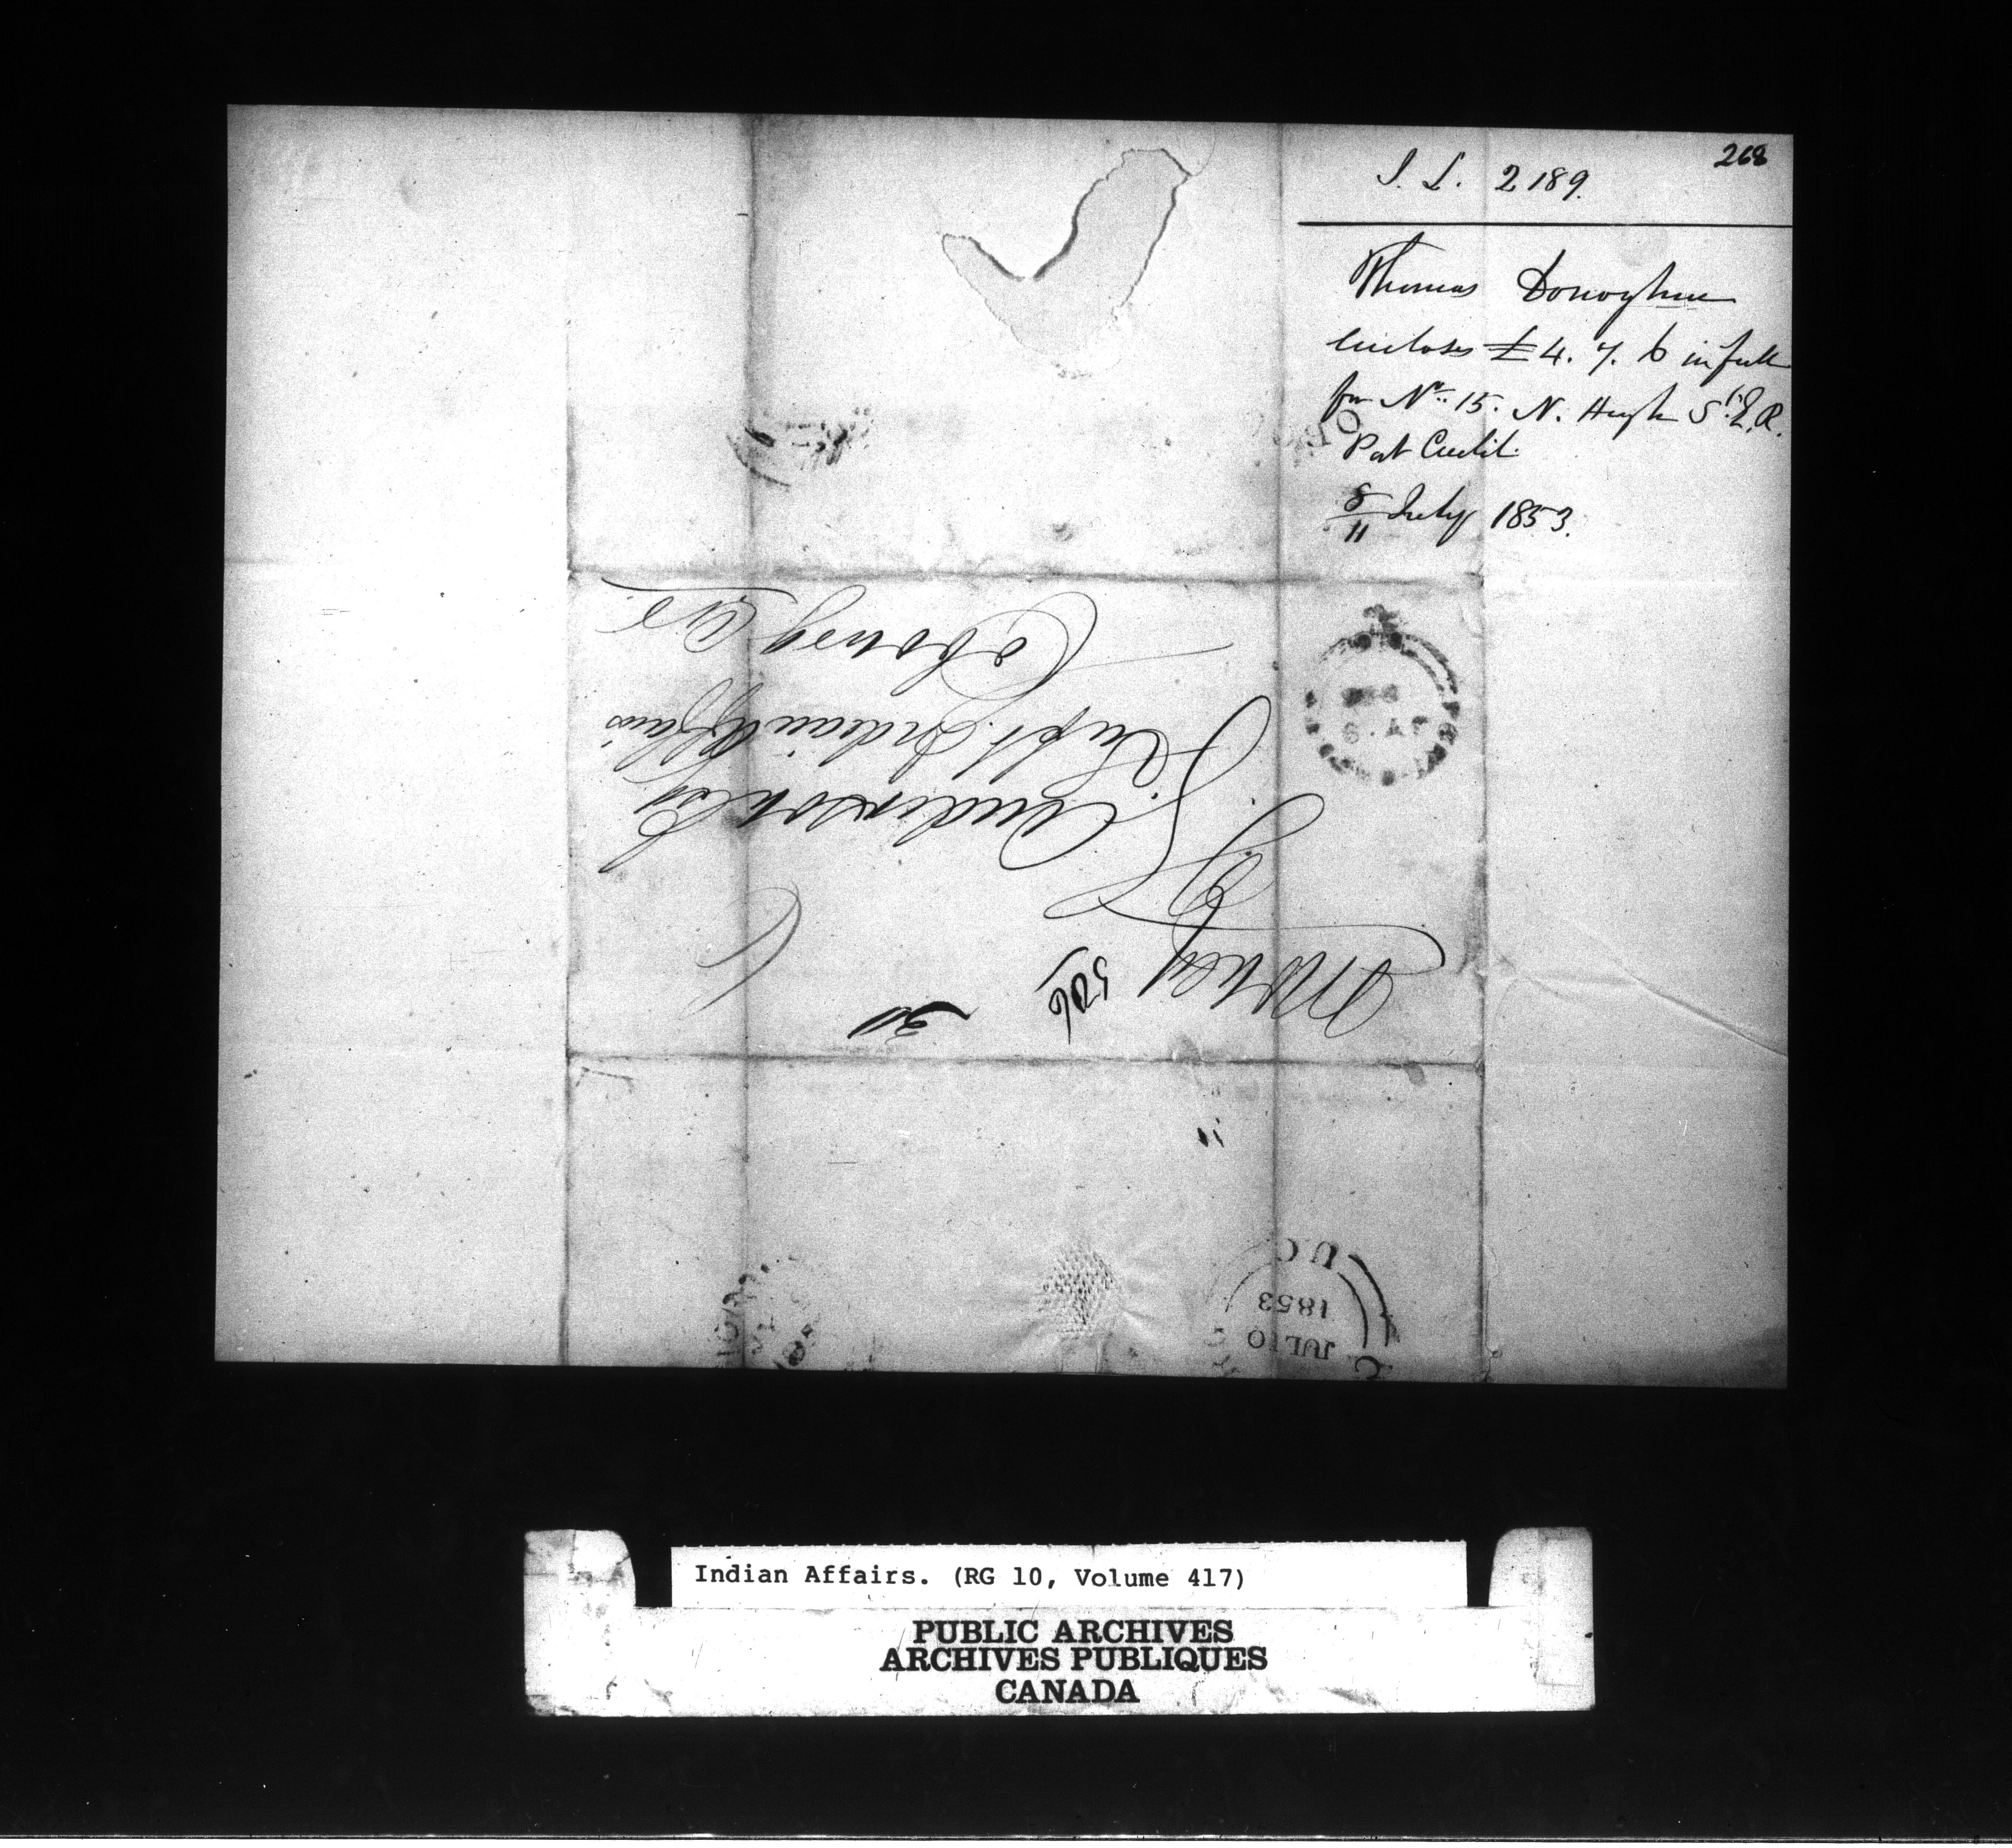 268
I. L. 2189.
Thomas Donoghue
encloses £4. 7. 6 in full
for No. 15. N. Hugh St. E. R.
Port Credit.
8/11 July 1853.
Money
506
T. G. Anderson Esqr
V. Supt. Indian Affairs
Cobourg C.W.
JUL 10
1853
U.C
Indian Affairs. (RG 10, Volume 417)
PUBLIC ARCHIVES
ARCHIVES PUBLIQUES
CANADA